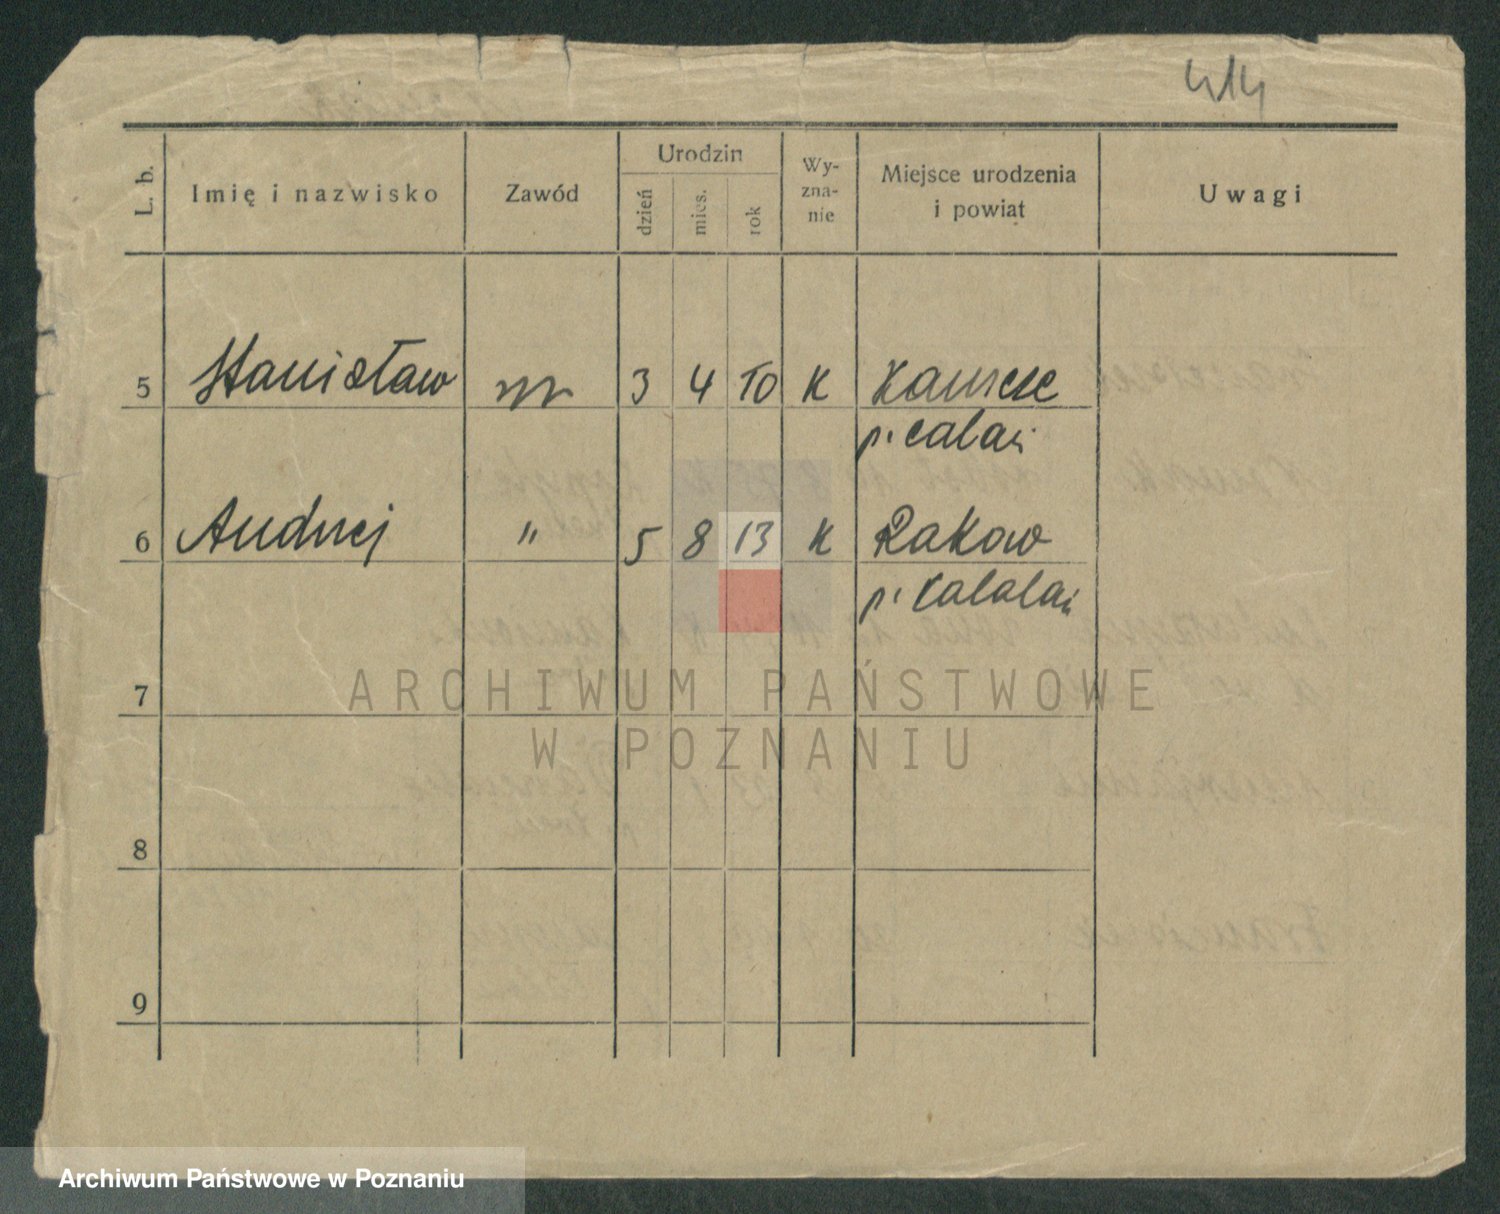 414
L. b. Imię i nazwisko Zawód Urodzin dzień mies. rok Wy-zna-nie Miejsce urodzenia i powiat Uwagi
5 Stanisław 3 4 10 K
p.
6 Andrzej " 5 8 13 K Rakow
p.
7
8
9
ARCHIWUM PAŃSTWOWE
W POZNANIU
Archiwum Państwowe w Poznaniu